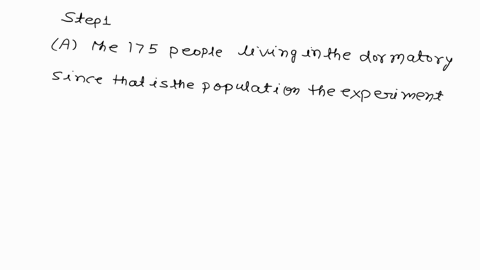 Step1
(A) The 175 people living in the dormatory
Since that is the population the experiment